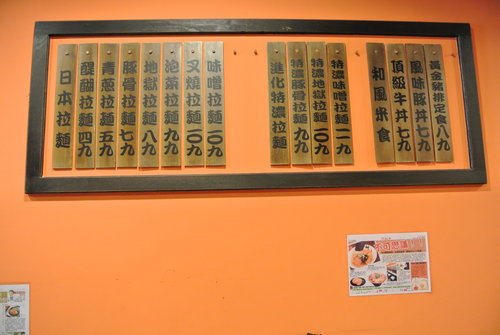 黃金豬排定食八九
風味豚丼七九
頂級牛丼七九
和風米食
特濃味噌拉麵一一九
特濃地獄拉麵一〇九
特濃豚骨拉麵九九
進化特濃拉麵
味噌拉麵一〇九
叉燒拉麵一〇九
泡菜拉麵九九
地獄拉麵八九
豚骨拉麵七九
青蔥拉麵五九
醍醐拉麵四九
日本拉麵
不可思議